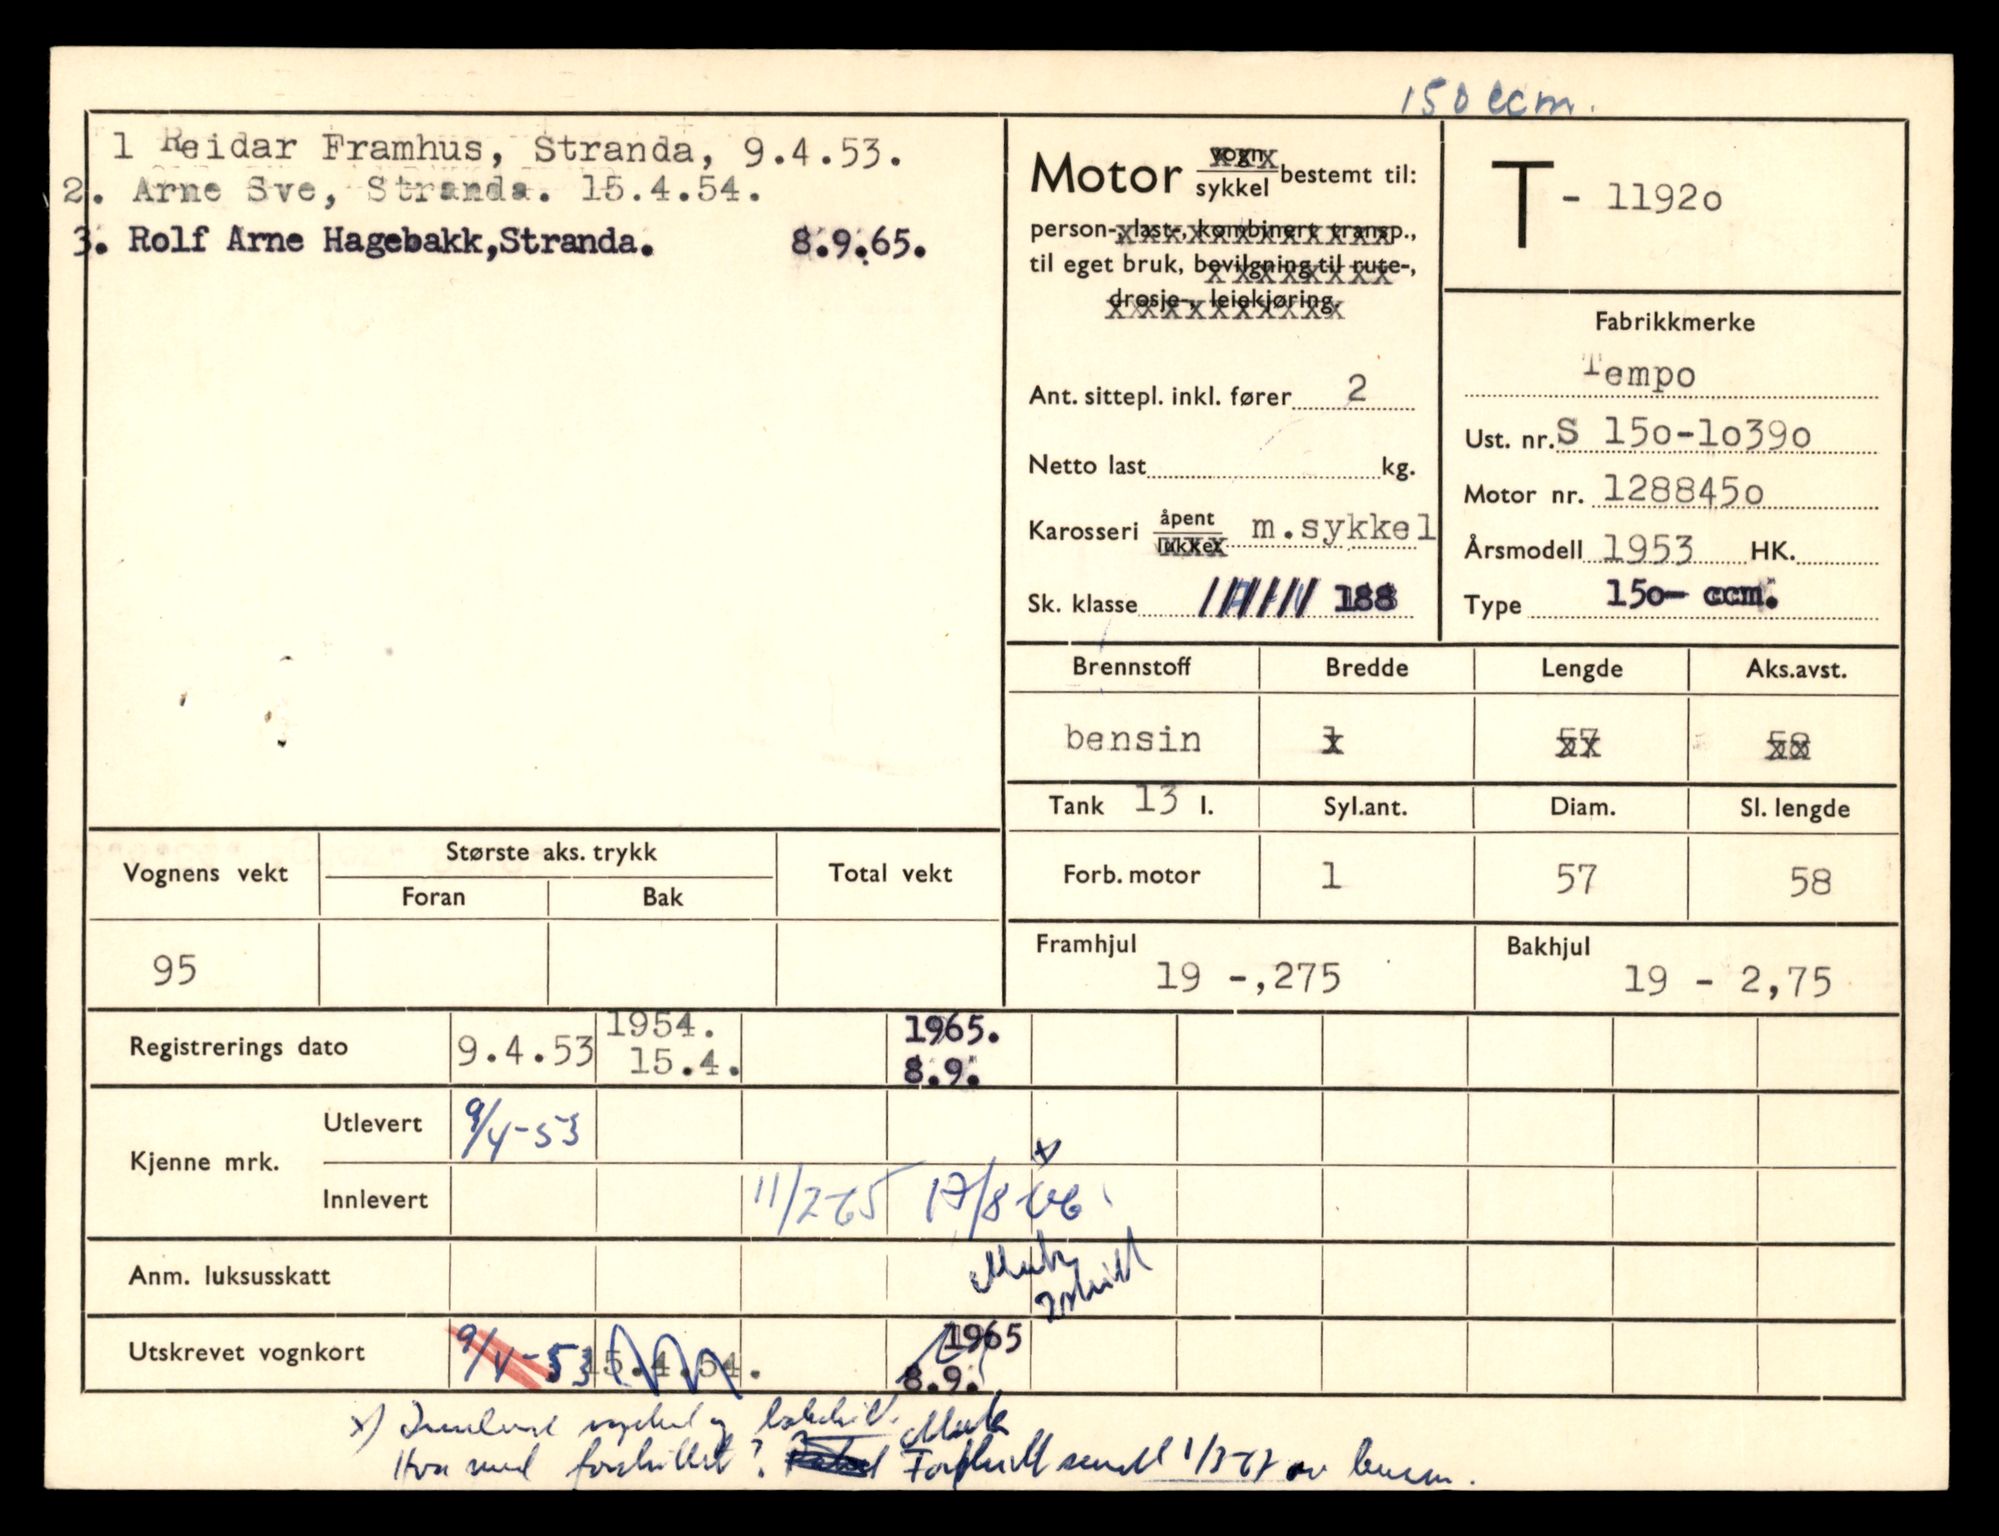 150 ccm.
1 Reidar Framhus, Stranda, 9.4.53.
2. Arne Sve, Stranda. 15.4.54.
3. Rolf Arne Hagebakk,Stranda. 8.9.65.
Motor vogn sykkel bestemt til:
person-, last-, kombinert transp.,
til eget bruk, bevilgning til rute-,
drosje-, leiekjøring.
Ant. sittepl. inkl. fører 2
Netto last kg.
Karosseri åpent lukket m.sykkel
Sk. klasse 188
T - 1192o
Fabrikkmerke
Tempo
Ust. nr. S 15o-1o39o
Motor nr. 128845o
Årsmodell 1953 HK.
Type 15o- ccm.
Brennstoff Bredde Lengde Aks.avst.
bensin 1 57 58
Tank 13 l. Syl.ant. Diam. Sl. lengde
Forb. motor 1 57 58
Framhjul Bakhjul
19 -,275 19 - 2,75
Vognens vekt Største aks. trykk Total vekt
Foran Bak
95
Registrerings dato 9.4.53 1954. 15.4. 1965. 8.9.
Kjenne mrk. Utlevert 9/4-53
Innlevert 11/2-65 17/8-66
Anm. luksusskatt
Utskrevet vognkort 9/4-53 15.4.54. 1965 8.9.
x)
Hva med forskiltet? Forskilt sendt 1/3-67 av